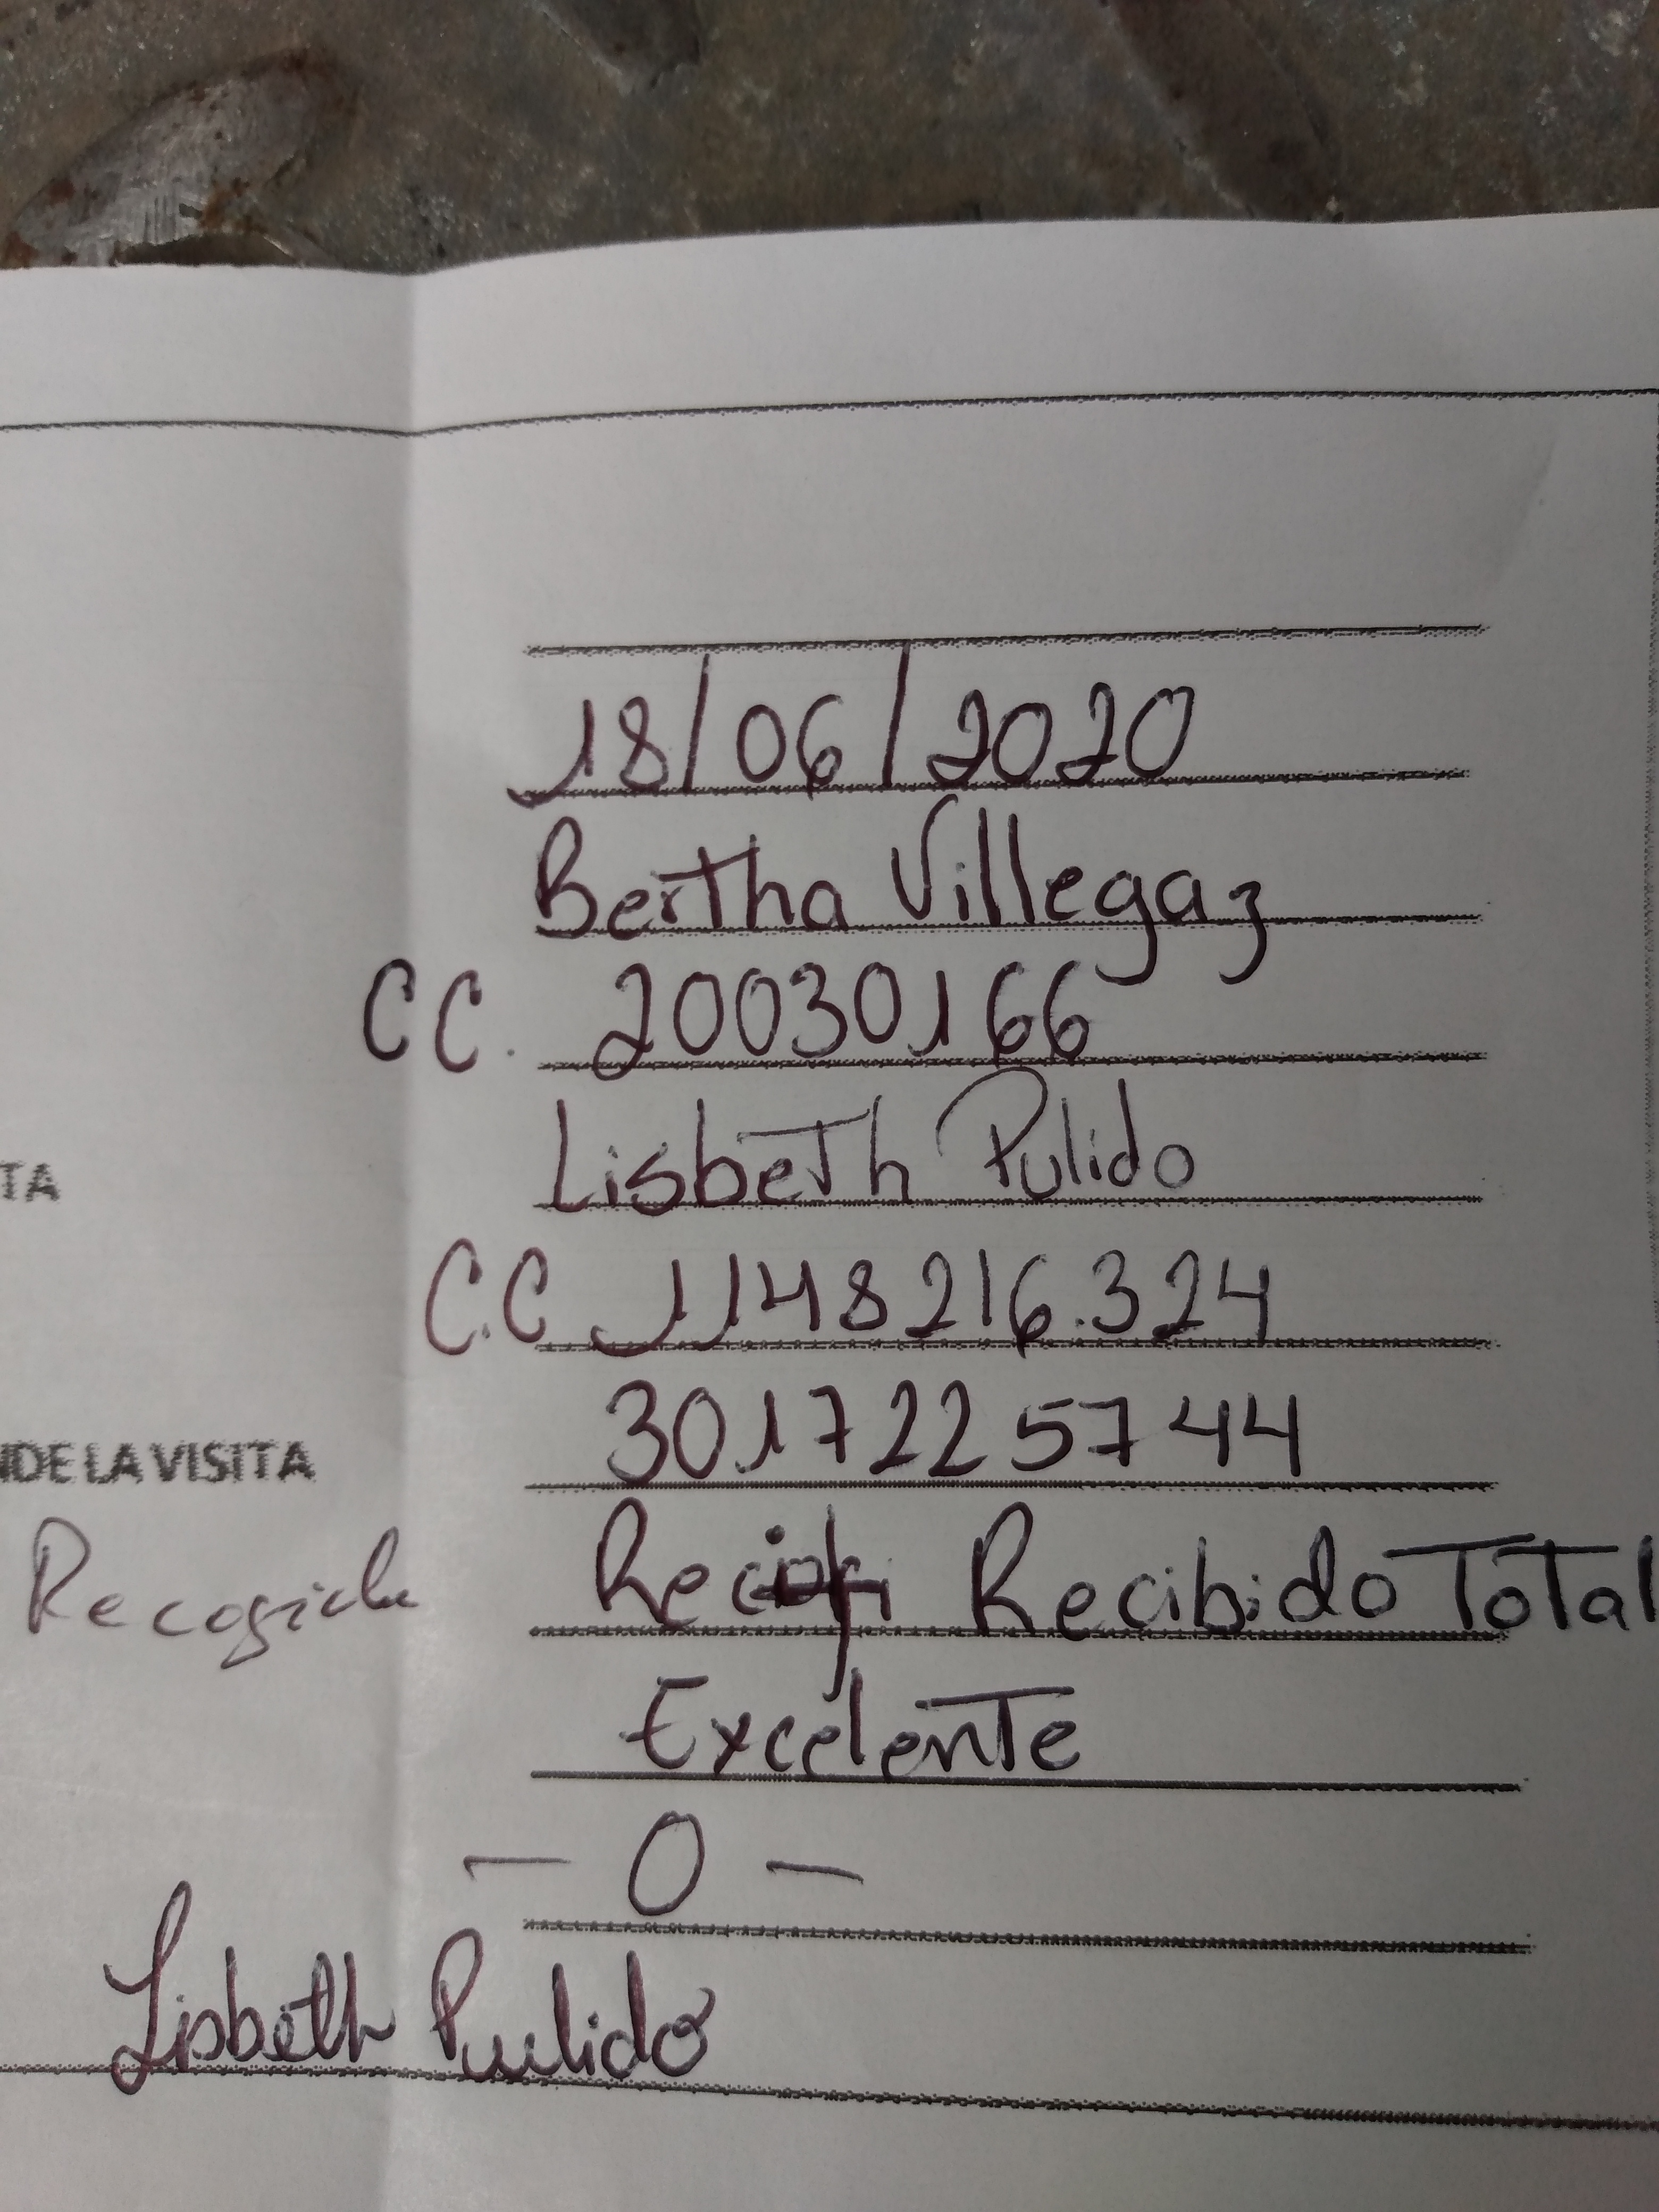 18/06/2020
Bertha Villegaz
CC. 20030166
Lisbeth Pulido
TA
C.C. 1148216.324
3017225744
NDE LA VISITA
Recogida Recibido Total
Excelente
- 0 -
Lisbeth Pulido